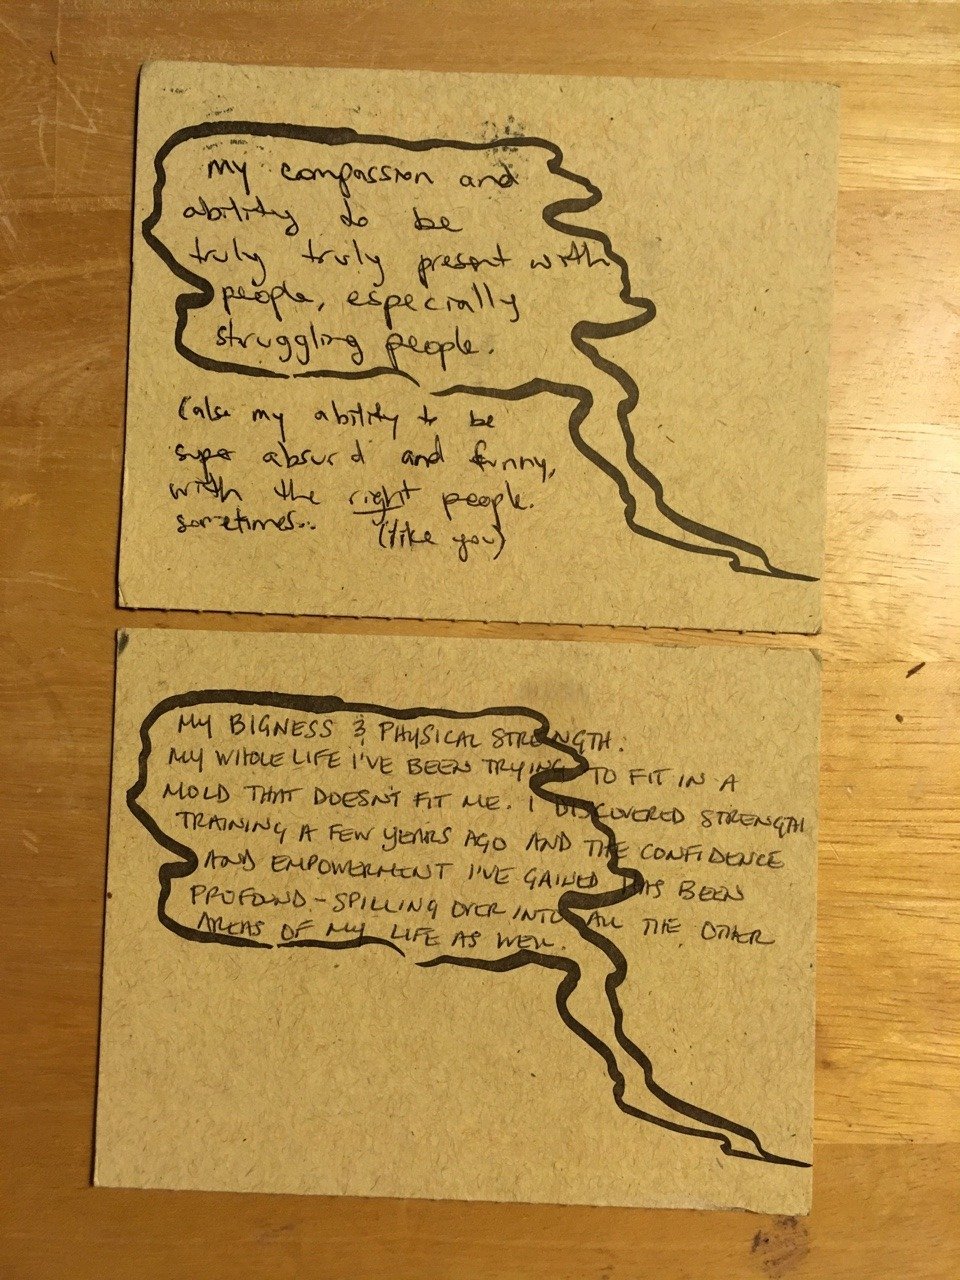 my compassion and
ability to be
truly truly present with
people, especially
struggling people.
(also my ability to be
super absurd and funny,
with the right people.
sometimes...
(like you)
MY BIGNESS & PHYSICAL STRENGTH.
MY WHOLE LIFE I'VE BEEN TRYING TO FIT IN A
MOLD THAT DOESN'T FIT ME. I DISCOVERED STRENGTH
TRAINING A FEW YEARS AGO AND THE CONFIDENCE
AND EMPOWERMENT I'VE GAINED HAS BEEN
PROFOUND - SPILLING OVER INTO ALL THE OTHER
AREAS OF MY LIFE AS WELL.